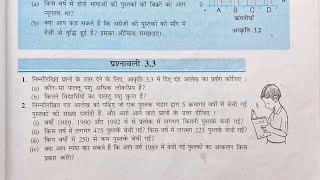 (a) किस वर्ष में दोनों भाषाओं की पुस्तकों की बिक्री का अंतर
न्यूनतम था।
(b) क्या आप कह सकते हैं कि अंग्रेजी की पुस्तकों की माँग में
तेजी से वृद्धि हुई है? इसका औचित्य समझाइए।
A B C D
कंपनियाँ
आकृति 3.2
प्रश्नावली 3.3
1. निम्नलिखित प्रश्नों के उत्तर देने के लिए, आकृति 3.3 में दिए दंड आलेख का प्रयोग कीजिए :
(a) कौन-सा पालतू पशु अधिक लोकप्रिय है?
(b) कितने विद्यार्थियों का पालतू पशु कुत्ता है?
2. निम्नलिखित दंड आलेख को पढ़िए जो एक पुस्तक भंडार द्वारा 5 क्रमागत वर्षों में बेची गई
पुस्तकों की संख्या दर्शाता है, और आगे आने वाले प्रश्नों के उत्तर दीजिए :
(i) वर्षों 1989, 1990 और 1992 में से प्रत्येक में लगभग कितनी पुस्तकें बेची गईं?
(ii) किस वर्ष में लगभग 475 पुस्तकें बेची गईं? किस वर्ष में लगभग 225 पुस्तकें बेची गईं?
(iii) किन वर्षों में 250 से कम पुस्तकें बेची गईं?
(iv) क्या आप स्पष्ट कर सकते हैं कि आप वर्ष 1989 में बेची गई पुस्तकों का आकलन किस
प्रकार करेंगे?